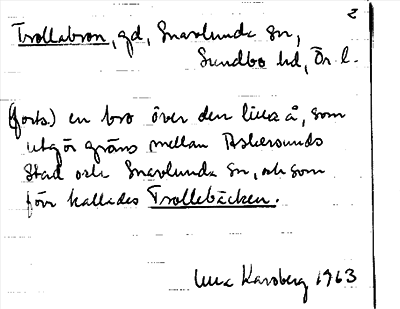 2
Trollabron, gd, Snavlunda sn,
Sundbo hd, Ör. l.
(forts.) en bro över den lilla å, som
utgör gräns mellan Askersunds
stad och Snavlunda sn, och som
förr kallades Trollebäcken.
Karsberg 1963